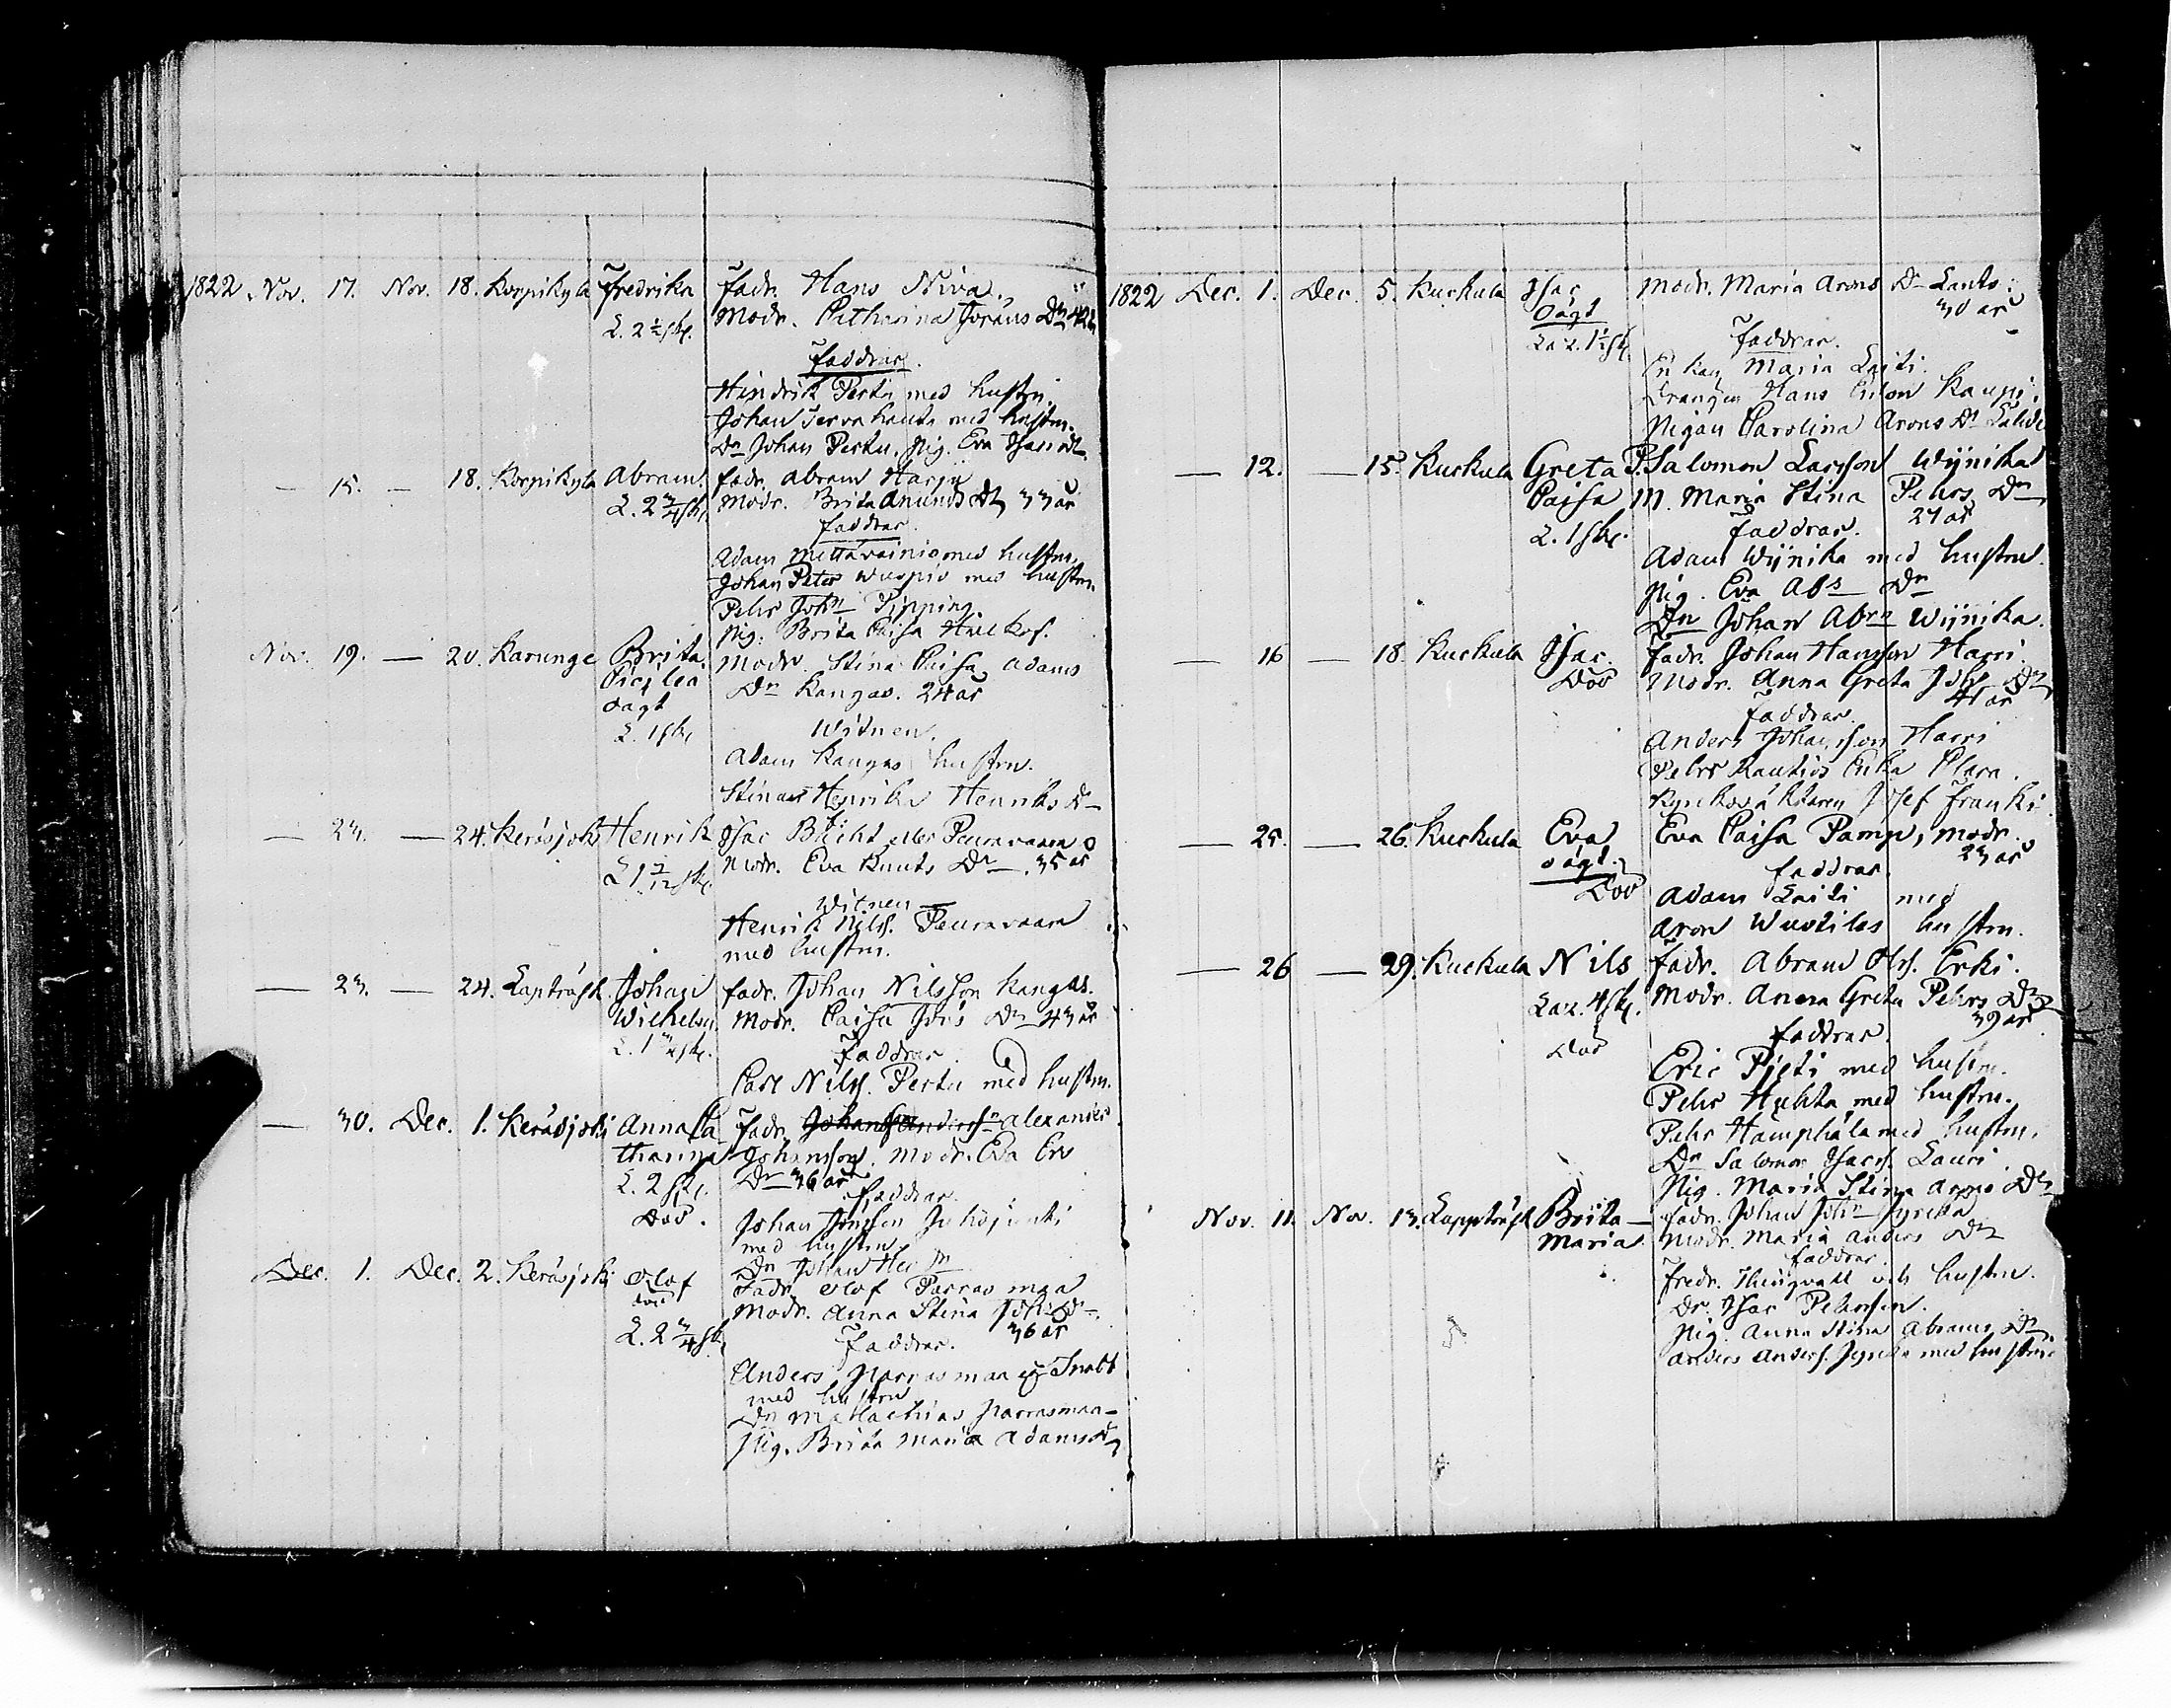 1822 Nov. 17. Nov. 18. Korpikyla Fredrika Fadr. Hans Niva.
Modr. Catharina Jörans Dr 42 år
Faddrar.
Hindrik Pertu med hustru.
Johan Tervahauta med hustru.
Dn Johan Pertu, Pig. Eva
— 15. — 18. Korpikyla Abram. fadr. Abram Harju
Modr. Brita Anunds Dr 33 år
faddrar.
Adam Mettävainio med hustru.
Johan Peter Wuopio med hustru.
Pehr Johs Pipping.
Pig. Brita Caisa
Nov. 19. — 20. Karunge Brita Modr. Stina Caisa Adams
Cicilea Dr Kangas. 24 år
oägt
Witnen.
Adam Kangas hustru.
Stina Henrika Henriks Dr
— 23. — 24. Keräsjoki Henrik Isac Blicht eller Peuravaara
Modr. Eva Knuts Dr 35 år
Witnen
Henrik Nilss. Peuravaara
med hustru.
— 23. — 24. Lapträsk Johan fadr. Johan Nilsson Kangas.
Wilhelm Modr. Caisa Jörs Dr 43 år
faddrar
Carl Nilss. Pertu med hustru.
— 30. Dec. 1. Keräsjoki Anna Ca fadr. Johan Anderss Alexander
tharina Johansson. Modr. Eva Ers
Dr 36 år
Döv. faddrar.
Johan Jönsson
med hustru
Dn Johan
Dec. 1. Dec. 2. Keräsjoki Olof Fadr. Olof Parrasmaa
Döv Modr. Anna Stina Johs Dr
36 år
Faddrar.
Anders Parrasmaa
med hustru
Dn Mallachias Parrasmaa
Pig. Brita Maria Adams Dr
1822 Dec. 1. Dec. 5. Kuckula Isac Modr. Maria Arons Dr Lants:
Oägt 30 år
faddrar.
Enkan Maria Laiti.
Drängen Hans Ericson Kauppi.
Pigan Carolina Arons Dr
— 12. — 15. Kuckula Greta F. Salomon Larsson Wijnika
Caisa M. Maria Stina Pehrs Dr
27 år
faddrar.
Adam Wijnika med hustru.
Pig. Eva Abs Dr
Dn Johan Abrs Wijnika.
— 16 — 18. Kuckula Isac. fadr. Johan Hansson Harri
Döv Modr. Anna Greta Johs Dr
41 år
faddrar.
Anders Johansson Harri
Pehr Rautio Enka Clara.
Kyrkovaktaren Josef Franki
— 25. — 26. Kuckula Eva Eva Caisa Pamp, modr.
oägt. 23 år
Döv faddrar.
Adam Laiti med
Aron Wuotilas hustru.
— 26 — 29. Kuckula Nils fadr. Abram Ols. Erki.
Modr. Anna Greta Pehrs Dr
39 år
Döv faddrar.
Eric Pjeti med hustru.
Pehr Huhta med hustru.
Pehr Hamphala med hustru.
Dn Salomon Isacs. Lauri.
Pig. Maria Stina Arons Dr
Nov. 11. Nov. 13. Lappträsk Brita fadr. Johan Johs
Maria Modr. Maria Anders Dr
faddrar.
Fredr. Thingvall och hustru.
Dr. Isac Pehrsson.
Pig. Anna Stina Abrams Dr
Anders Anders. med hustru